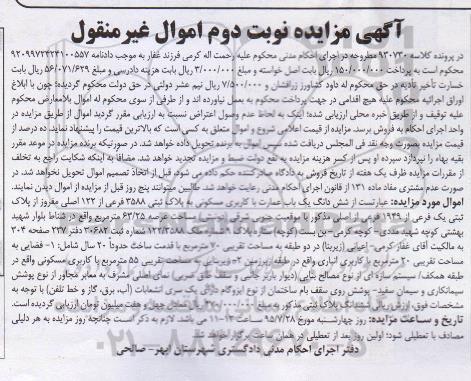 آگهی مزایده نوبت دوم اموال غیر منقول
در پرونده کلاسه ۹۳۰۷۳۰ مطروحه در اجرای احکام مدنی محکوم علیه رحمت اله کرمی فرزند غفار به موجب دادنامه ۹۲۰۹۹۷۲۴۲۴۱۰۰۵۵۷
محکوم است به پرداخت ۱۵۰/۰۰۰/۰۰۰ ریال بابت اصل خواسته و مبلغ ۳/۰۰۰/۰۰۰ ریال بابت هزینه دادرسی و مبلغ ۵۶/۰۷۱/۶۲۹ ریال بابت
خسارت تأخیر تأدیه در حق محکوم له داود کشاورز زرافشان و ۷/۵۰۰/۰۰۰ ریال نیم عشر دولتی در حق دولت محکوم گردیده؛ چون با ابلاغ
اوراق اجرائیه محکوم علیه هیچ اقدامی در جهت پرداخت محکوم به بعمل نیاورده اند و از طرفی از سوی محکوم له اموال بلامعارض محکوم
علیه توقیف و از طریق خبره محلی ارزیابی شده؛ اینک به لحاظ عدم وصول اعتراض نسبت به ارزیابی مقرر گردید اموال از طریق مزایده در
واحد اجرای احکام به فروش برسد. مزایده از قیمت اعلامی شروع و اموال متعلق به کسی است که بالاترین قیمت را پیشنهاد نماید. ده درصد از
قیمت مزایده بصورت وجه نقد فی المجلس دریافت شده سپس اموال به برنده تحویل داده خواهد شد. در صورتیکه برنده مزایده در موعد مقرر
بقیه بهاء را نپردازد سپرده او پس از کسر هزینه مزایده به نفع دولت ضبط و مزایده تجدید خواهد شد. مضافا به اینکه شکایت راجع به تخلف
از مقررات مزایده ظرف یک هفته از تاریخ فروش به دادگاه صادرکننده حکم داده می شود. قبل از اتخاذ تصمیم اموال تحویل نخواهد شد. در
صورت عدم مشتری مفاد ماده ۱۳۱ از قانون اجرای احکام مدنی رعایت خواهد شد. طالبین میتوانند پنج روز قبل از مزایده از اموال دیدن نمایند.
اموال مورد مزایده: عبارتست از شش دانگ یک باب عمارت با کاربری مسکونی به پلاک ثبتی ۳۵۸۸ فرعی از ۱۲۲ اصلی مفروز از پلاک
ثبتی یک فرعی از ۱۹۴۹ فرعی از اصلی مذکور با موقعیت جنوب شرقی
بهشتی کوچه شهید مقدی- کوچه کرمی- بن بست
به مالکیت آقای غفار کرمی- اعیانی (زیربنا) در دو طبقه به مساحت تقریبی ۷۰ مترمربع با قدمت ساخت حدودا ۲۰ سال شامل: ۱- فضایی به
مساحت تقریبی ۲۰ مترمربع با کاربری انباری واقع در طبقه زیرزمین ۲- زیربنایی به مساحت تقریبی ۵۵ مترمربع با کاربری مسکونی واقع در
طبقه همکف/ سیستم سازه ای از نوع مصالح بنایی
سیمانکاری و سیمان سفید- پوشش روی سقف بام ساختمان از نوع ایزوگام دارای یک سری انشعابات (آب، برق، گاز و خط تلفن) با توجه به
مشخصات فوق، ارزش ریالی ششدانگ پلاک ثبتی مذکور به مبلغ
تاریخ و ساعت مزایده: روز چهارشنبه مورخ ۹۵/۷/۲۸ از ساعت ۱۳-۱۱ می باشد. لازم به ذکر است چنانچه روز مزایده به هر دلیلی
مصادف با تعطیلی شود؛ اولین روز بعد از تعطیلی در همان ساعت برگزار خواهد شد.
دفتر اجرای احکام مدنی دادگستری شهرستان ابهر- صالحی